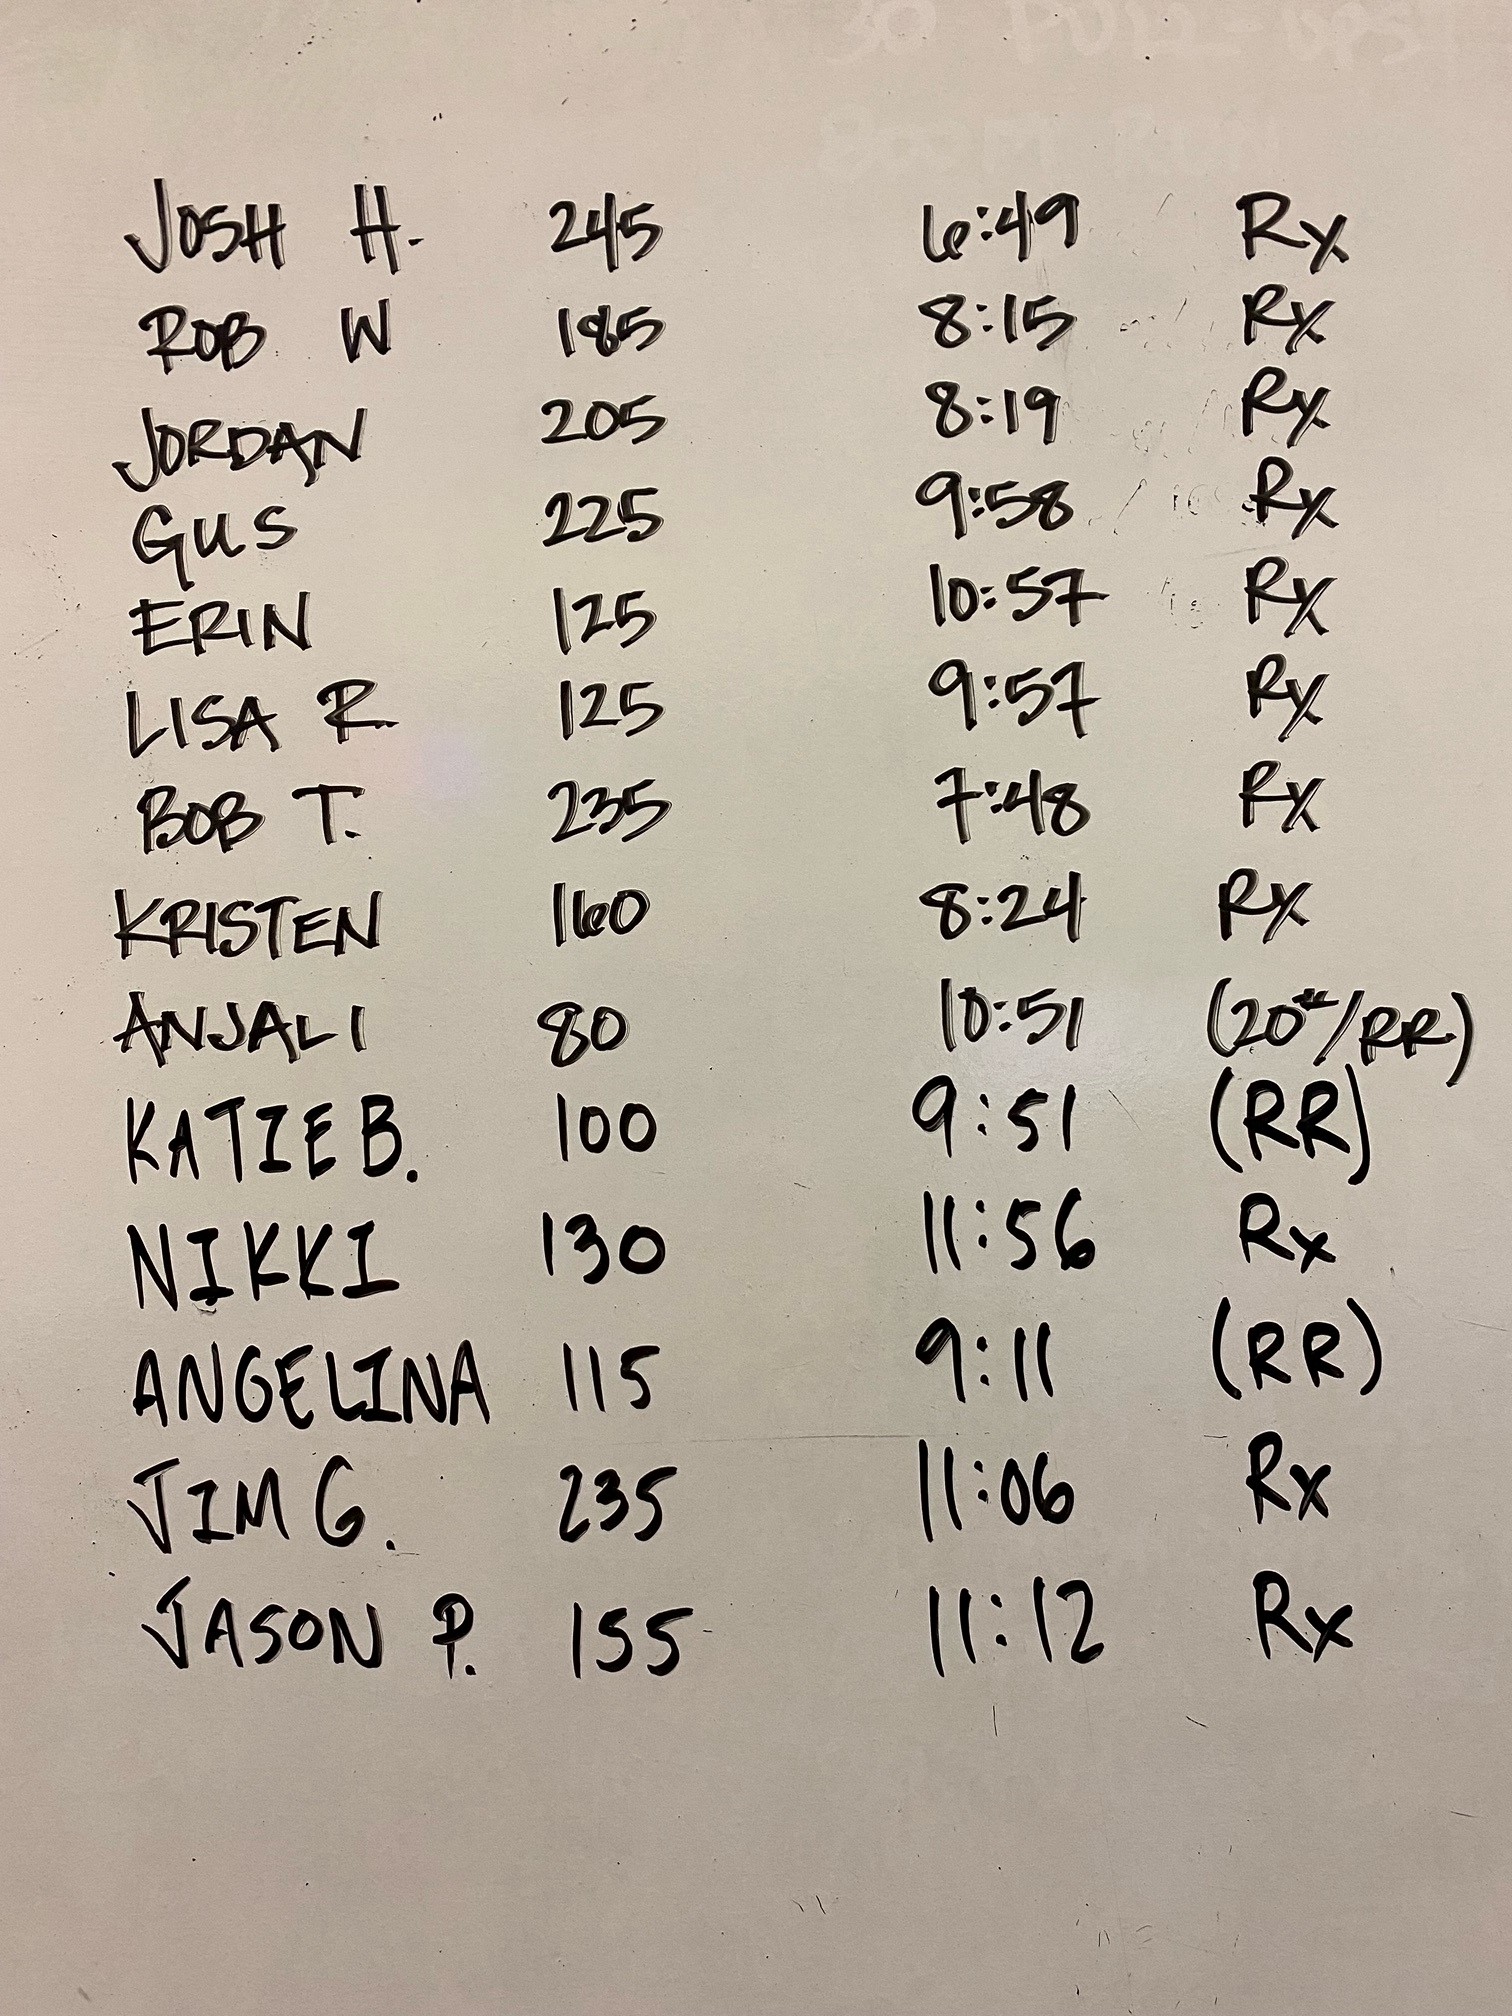 JOSH H. 245 6:49 Rx
ROB W 185 8:15 Rx
JORDAN 205 8:19 Rx
GUS 225 9:58 Rx
ERIN 125 10:57 Rx
LISA R. 125 9:57 Rx
BOB T. 235 7:48 Rx
KRISTEN 160 8:24 Rx
ANJALI 80 10:51 (20#/RR)
KATIE B. 100 9:51 (RR)
NIKKI 130 11:56 Rx
ANGELINA 115 9:11 (RR)
JIM G. 235 11:06 Rx
JASON P. 155 11:12 Rx